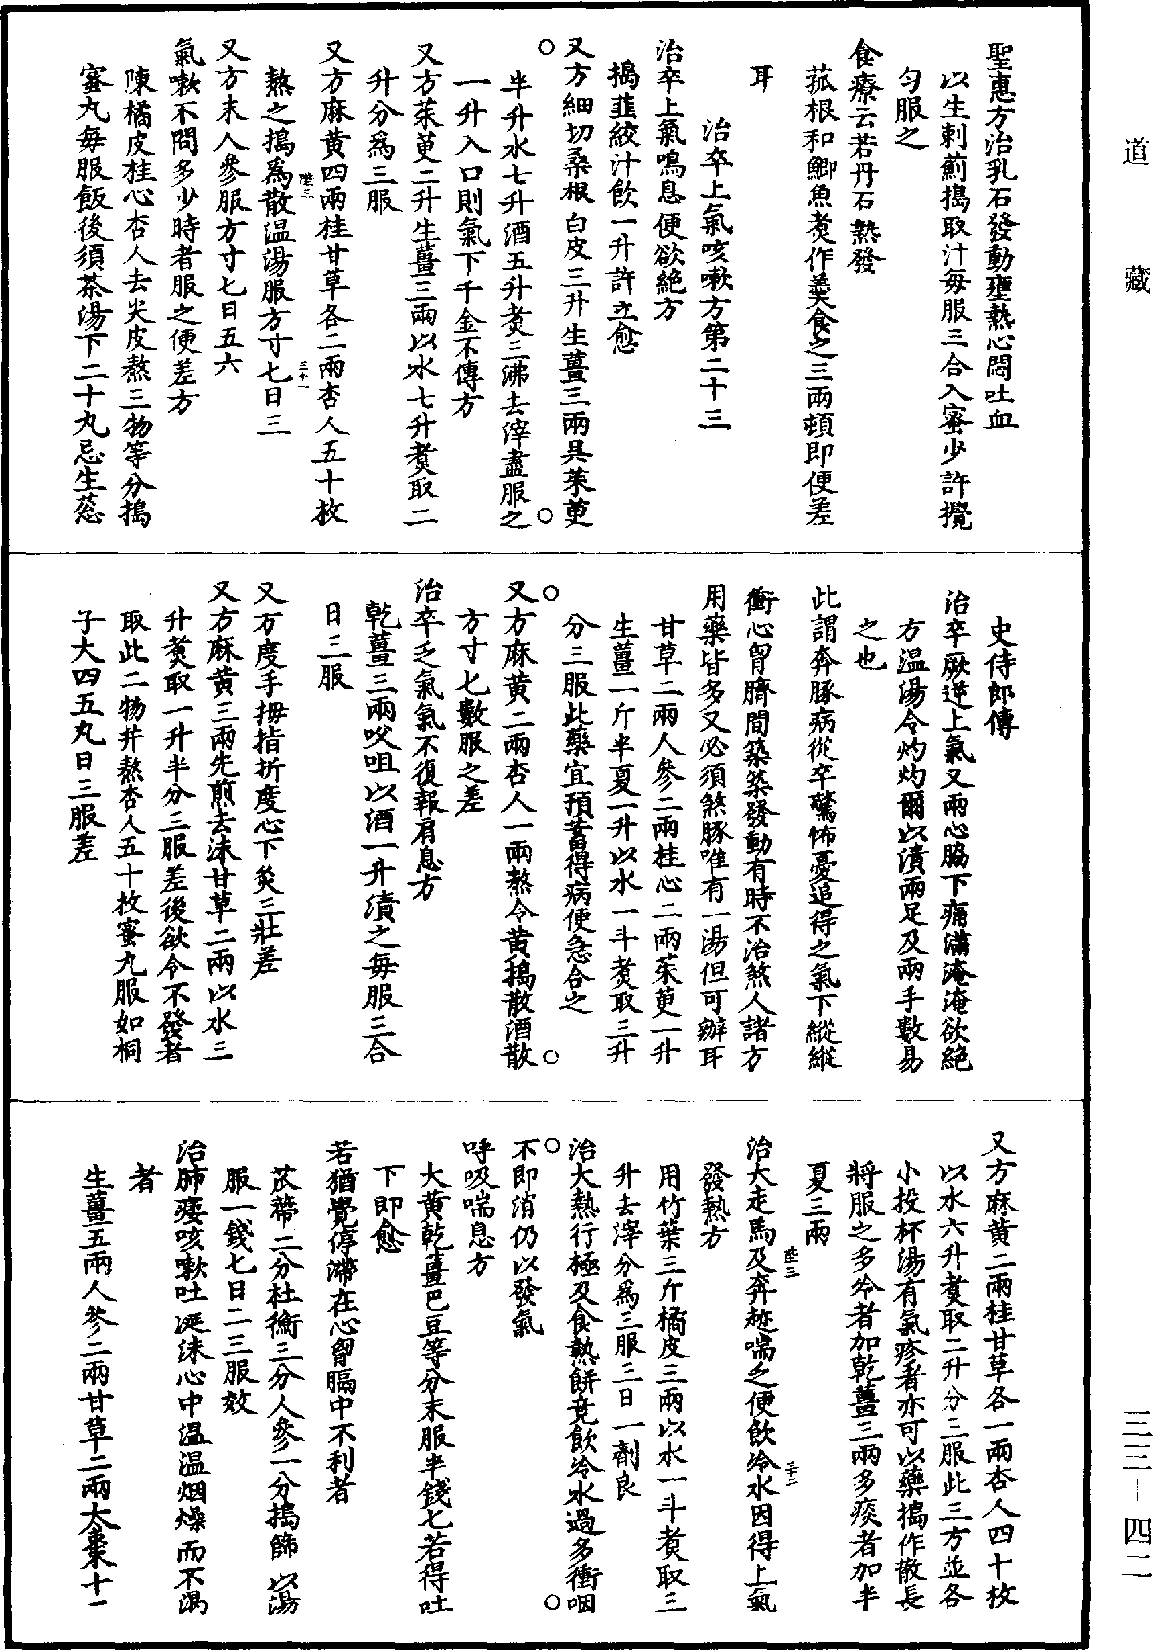 道藏
三三—四二
聖惠方治乳石發動壅熱心悶吐血
以生剌薊搗取汁每服三合入蜜少許攪
勻服之
食療云若丹石熱發
菰根和鯽魚煑作羹食之三兩頓即便差
耳
治卒上氣咳嗽方第二十三
治卒上氣鳴息便欲絕方
搗韮絞汁飲一升許立愈
又方細切桑根白皮三升生薑三兩具茱萸
半升水七升酒五升煑三沸去滓盡服之
一升入口則氣下千金不傳方
又方茱萸二升生薑三兩以水七升煑取二
升分爲三服
又方麻黄四兩桂甘草各二兩杏人五十枚
熬之搗爲散温湯服方寸匕日三
陸三
三十一
又方末人參服方寸匕日五六
氣嗽不問多少時者服之便差方
陳橘皮桂心杏人去尖皮熬三物等分搗
蜜丸每服飯後須茶湯下二十丸忌生葱
史侍郎傳
治卒厥逆上氣又兩心脇下痛滿淹淹欲絕
方温湯令灼灼爾以漬兩足及兩手數易
之也
此謂奔豚病從卒驚怖憂追得之氣下縱縱
衝心胷臍間築築發動有時不治煞人諸方
用藥皆多又必須煞豚唯有一湯但可辦耳
甘草二兩人參二兩桂心二兩茱萸一升
生薑一斤半夏一升以水一斗煑取三升
分三服此藥宜預蓄得病便急合之
又方麻黄二兩杏人一兩熬令黄搗散酒散
方寸匕數服之差
治卒乏氣氣不復報肩息方
乾薑三兩㕮咀以酒一升漬之每服三合
日三服
又方度手拇指折度心下灸三壯差
又方麻黄三兩先煎去沫甘草二兩以水三
升煑取一升半分三服差後欲令不發者
取此二物并熬杏人五十枚蜜丸服如桐
子大四五丸日三服差
又方麻黄二兩桂甘草各一兩杏人四十枚
以水六升煑取二升分三服此三方並各
小投杯湯有氣疹者亦可以藥搗作散長
將服之多冷者加乾薑三兩多痰者加半
夏三兩
陸三
三十二
治大走馬及奔趂喘乏便飲冷水因得上氣
發熱方
用竹葉三斤橘皮三兩以水一斗煑取三
升去滓分爲三服三日一劑良
治大熱行極及食熱餅竟飲冷水過多衝咽
不即消仍以發氣
呼吸喘息方
大黄乾薑巴豆等分末服半錢匕若得吐
下即愈
若猶覺停滯在心胷膈中不利者
苽蔕二分杜衡三分人參一分搗篩以湯
服一錢匕日二三服效
治肺痿咳嗽吐涎沫心中温温烟燥而不渴
者
生薑五兩人參二兩甘草二兩大棗十二